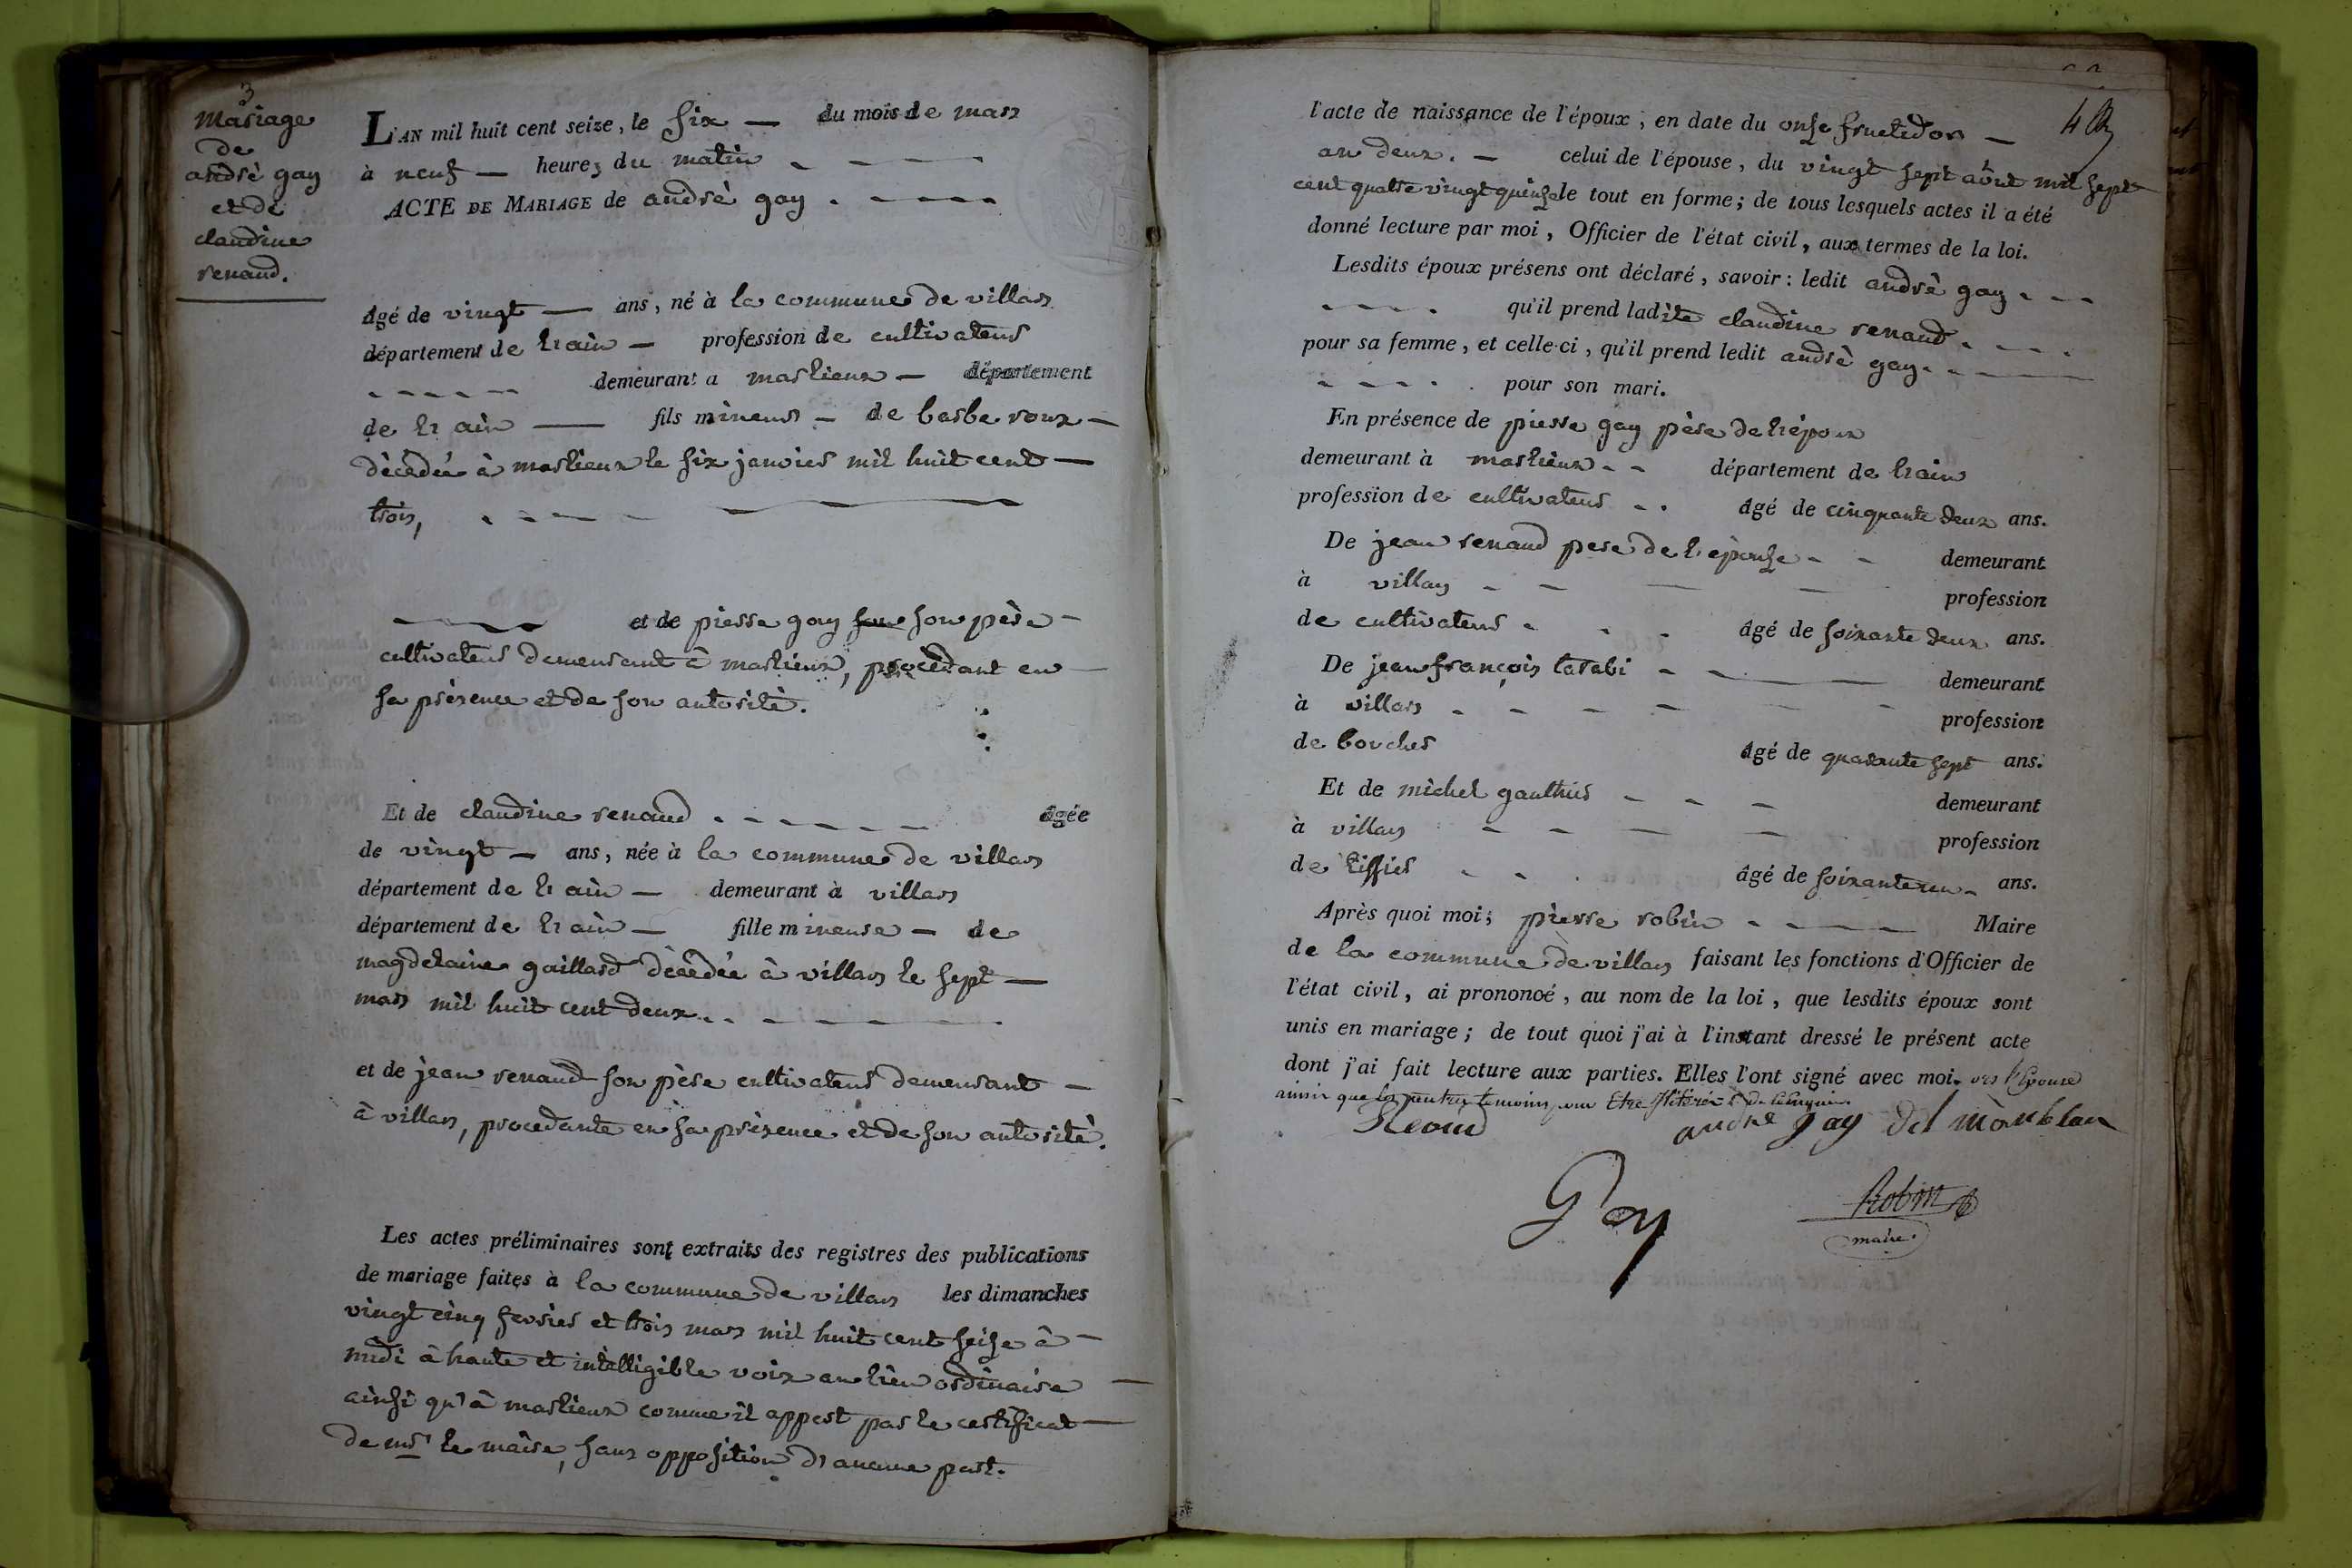 3
mariage
de
andrè gay
et de
claudine
renaud.
L'AN mil huit cent seize, le six — du mois de mars
à neuf — heures du matin
ACTE DE MARIAGE de andrè gay
âgé de vingt — ans, né à la commune de villars
département de l'ain — profession de cultivateur
demeurant a marlieux — département
de l'ain — fils mineur — de barbe roux —
dècèdèe à marlieux le six janvier mil huit cent —
trois,
et de pierre gay son père —
cultivateur demeurant à marlieux, procèdant en —
sa présence et de son autorité.
Et de claudine renaud âgée
de vingt — ans, née à la commune de villars
département de l'ain — demeurant à villars
département de l'ain — fille mineure — de
magdelaine gaillard dècèdèe à villars le sept —
mars mil huit cent deux
et de jean renaud son père cultivateur demeurant —
à villars, procedante en sa présence et de son autorité.
Les actes préliminaires sont extraits des registres des publications
de mariage faites à la commune de villars les dimanches
vingt cinq fevrier et trois mars mil huit cent seise à —
midi à haute et intelligible voix au lieu ordinaire —
ainsi qu'à marlieux comme il appert par le certificat —
de mr le maire, sans opposition d'aucune part.
l'acte de naissance de l'époux, en date du onse fructidor —
an deux. — celui de l'épouse, du vingt sept aôut mil sept
cent quatre vingt quinse le tout en forme; de tous lesquels actes il a été
donné lecture par moi, Officier de l'état civil, aux termes de la loi.
Lesdits époux présens ont déclaré, savoir: ledit andrè gay
qu'il prend ladite claudine renaud
pour sa femme, et celle-ci, qu'il prend ledit andrè gay
pour son mari.
En présence de pierre gay père de l'époux
demeurant à marlieux département de l'ain
profession de cultivateur âgé de cinquante deux ans.
De jean renaud pere de l'épouse demeurant
à villars profession
de cultivateur âgé de soixante deux ans.
De jean françois tarabi demeurant
à villars profession
de boucher âgé de quarante sept ans.
Et de michel gauthier demeurant
à villars profession
de tissier âgé de soixante un ans.
Après quoi moi; pierre robin Maire
de la commune de villars faisant les fonctions d'Officier de
l'état civil, ai prononoé, au nom de la loi, que lesdits époux sont
unis en mariage; de tout quoi j'ai à l'instant dressé le présent acte
dont j'ai fait lecture aux parties. Elles l'ont signé avec moi. l'Epouse
ainsi que les autres temoins pour Etre illiteré de l'enquerir
andré gay
Gay
Robin
maire.